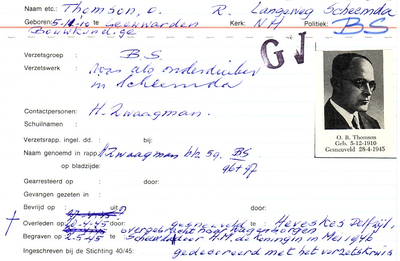 Naam etc.: Thomson, O. R. Langeweg Scheemda
Geboren: 5-12-10 te Leeuwarden Kerk: N.H. Politiek: B.S
Bouwkundige
Verzetsgroep : B.S.
Verzetswerk : was als onderduiker
in Scheemda
G
Contactpersonen: H. Zwaagman.
Schuilnaam :
Verzetsrapp. ingel. dd. : bij:
Naam genoemd in rapp.: H Zwaagman blz. 59. BS
op bladzijde: 96+97
O. R. Thomson
Geb. 5-12-1910
Gesneuveld 28-4-1945
Gearresteerd op : door:
Gevangen gezeten in :
Bevrijd op : uit door:
Overleden op: door: gesneuveld te Heveskes Delfzijl,
overgebracht naar
Begraven op : 2-5-45 Scheemda door H.M. de Koningin in Mei 1946
Ingeschreven bij de Stichting 40/45: gedecoreerd met het verzetskruis